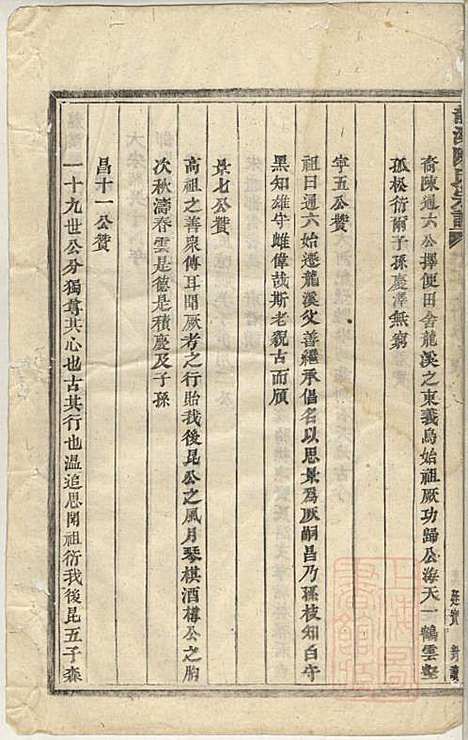 裔陳通六公擇便田舍龍溪之東義烏始祖厥功歸公海天一鶴雲壑
孤松衍爾子孫慶澤無窮
宇五公贊
祖曰通六始遷龍溪父善繼承倡名以思景為厥嗣昌乃孫枝知白守
黑知雄守雌偉哉斯老覡古而頎
景七公贊
高祖之善衆傳耳聞厥考之行貽我後昆公之風月琴棋酒樽公之胸
次秋濤春雲是德是積慶及子孫
昌十一公贊
一十九世公分獨尊其心也古其行也溫追思開祖衍我後昆五子森